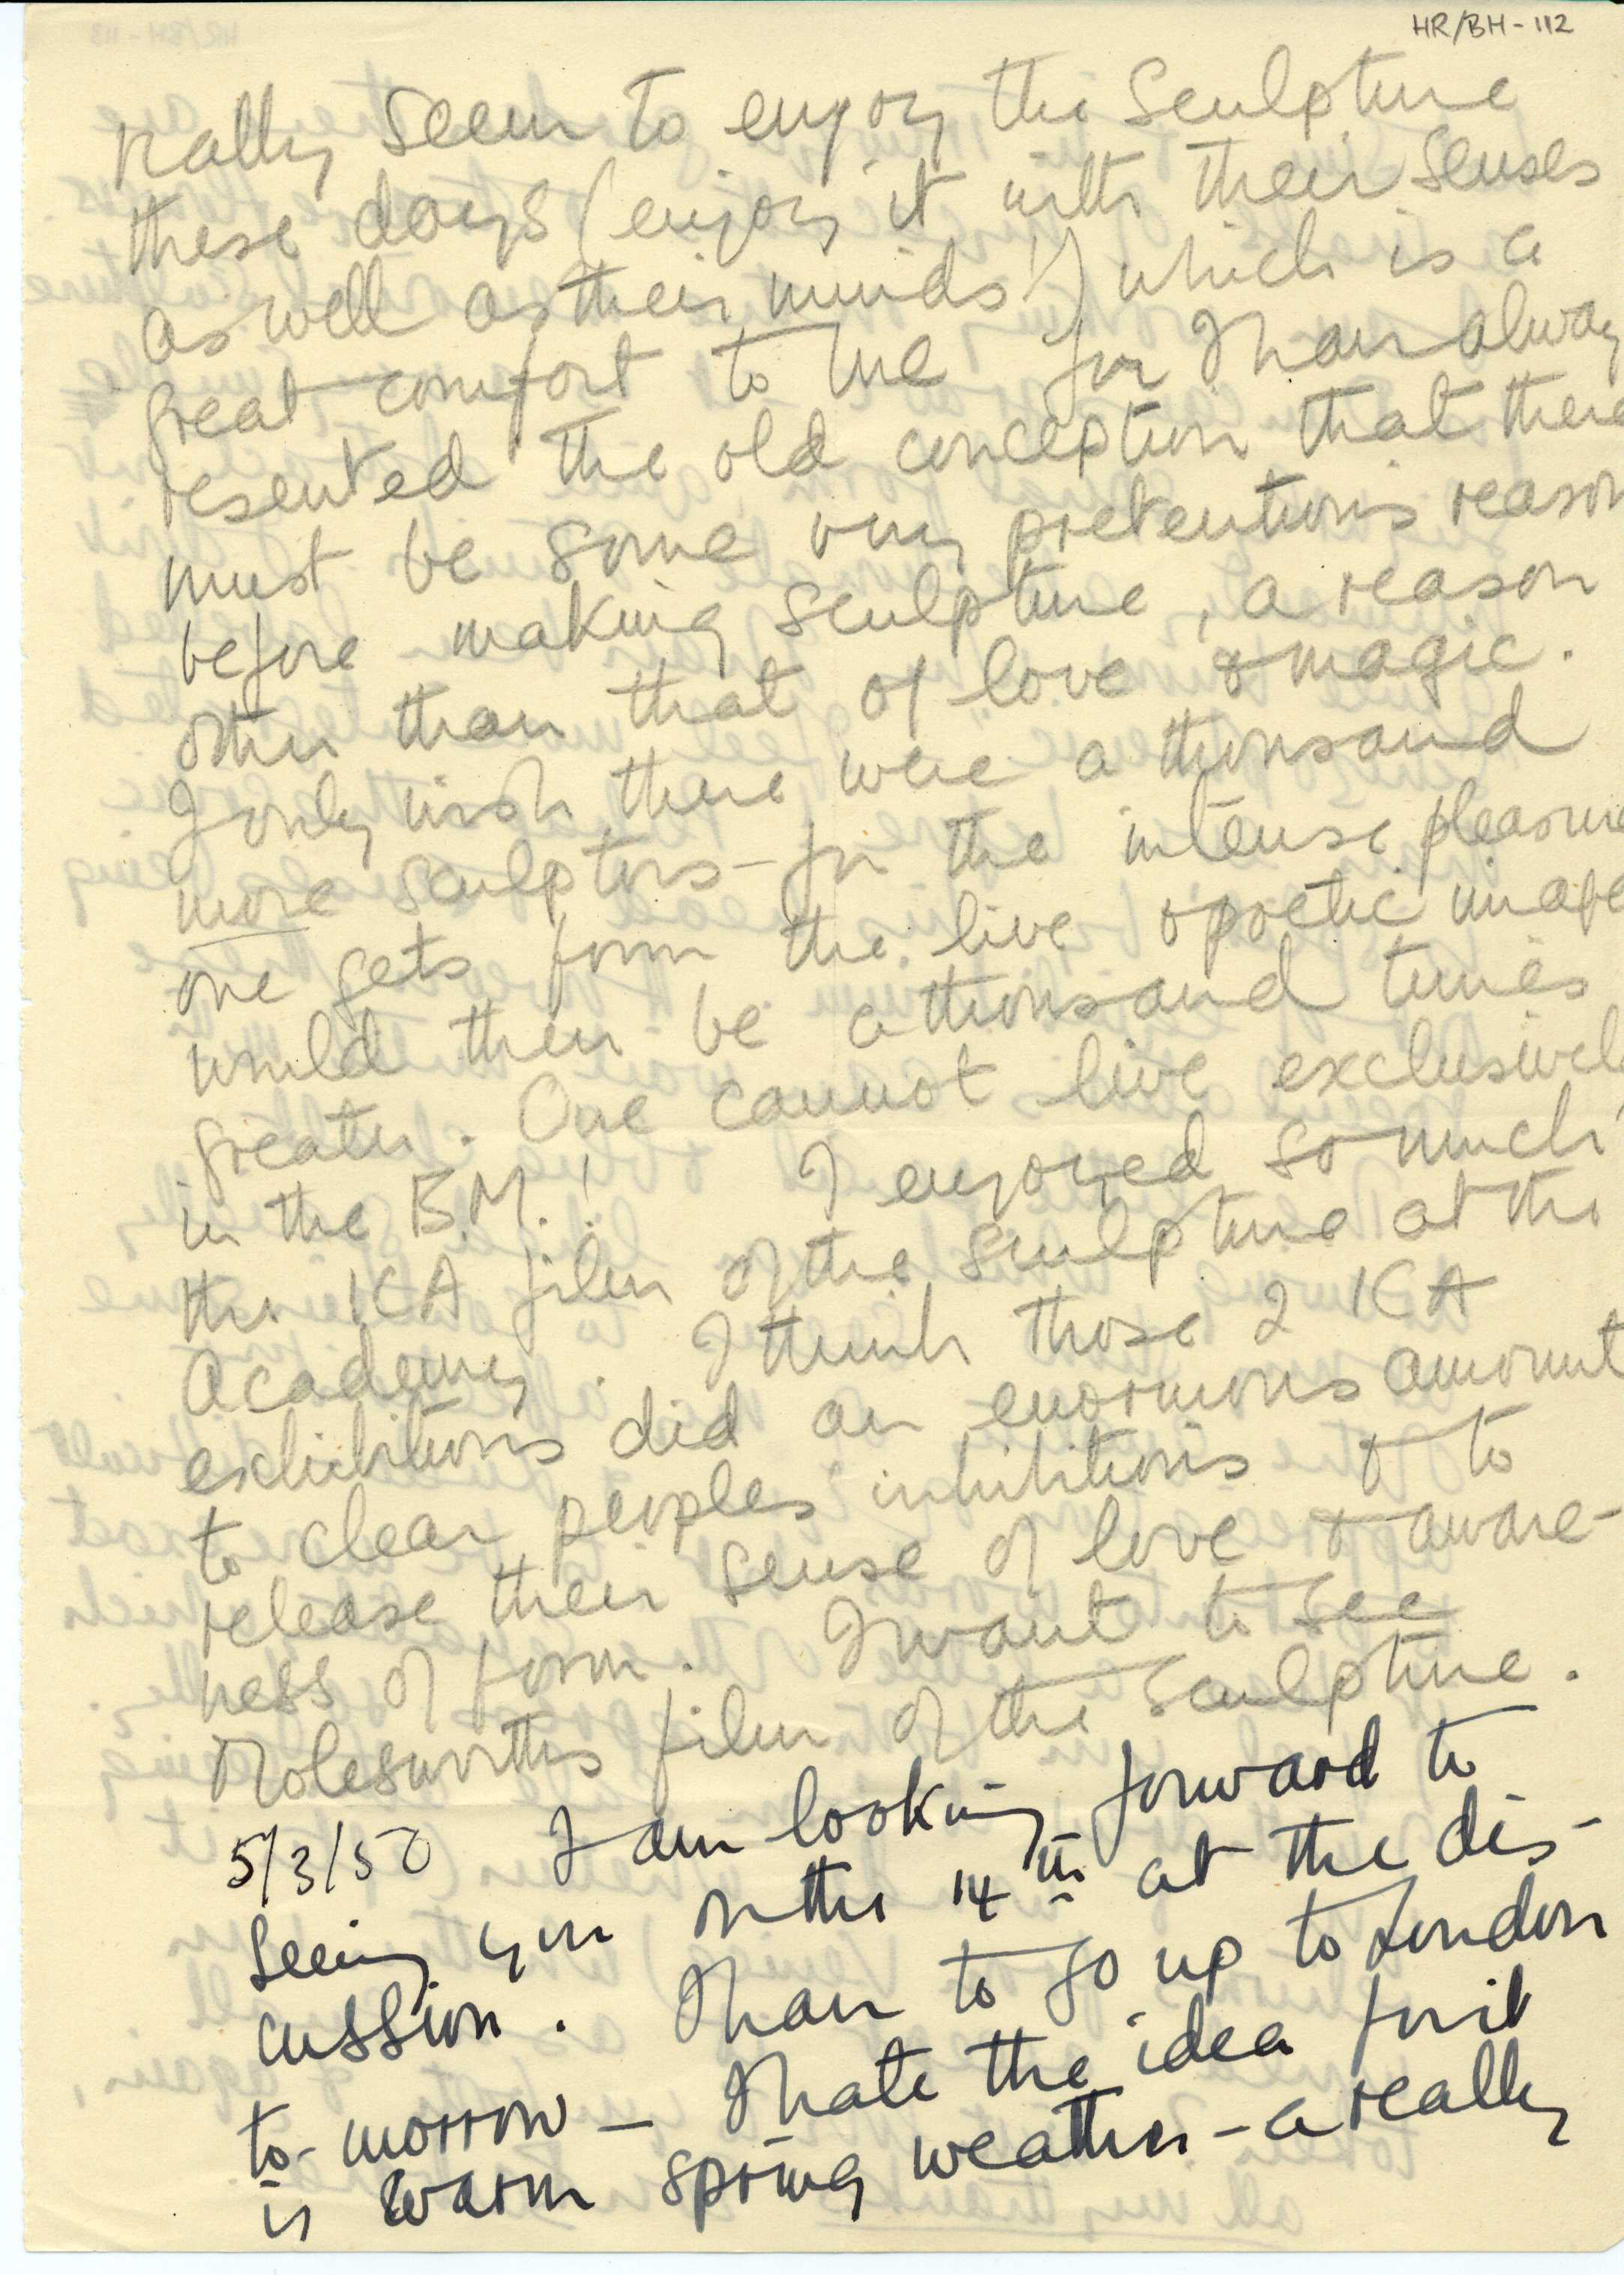 HR/BH - 112
really seem to enjoy the Sculpture
these days (enjoy it with their senses
as well as their minds!) which is a
great comfort to me for I have alway
resented the old conception that there
must be some very pretentious reason
before making Sculpture, a reason
other than that of love & magic.
I only wish there were a thousand
more sculptors – for the intense pleasure
one gets from the live & poetic image
would then be a thousand times
greater. One cannot live exclusively
in the B.M.! I enjoyed so much
the ICA film of the sculpture at the
Academy. I think those 2 ICA
exhibitions did an enormous amount
to clear peoples inhibitions & to
release their sense of love & aware-
ness of form. I want to see
Molesworths film of the Sculpture.
5/3/50 I am looking forward to
seeing you on the 14th at the dis-
cussion. I have to go up to London
to-morrow – I hate the idea for it
is warm spring weather – a really